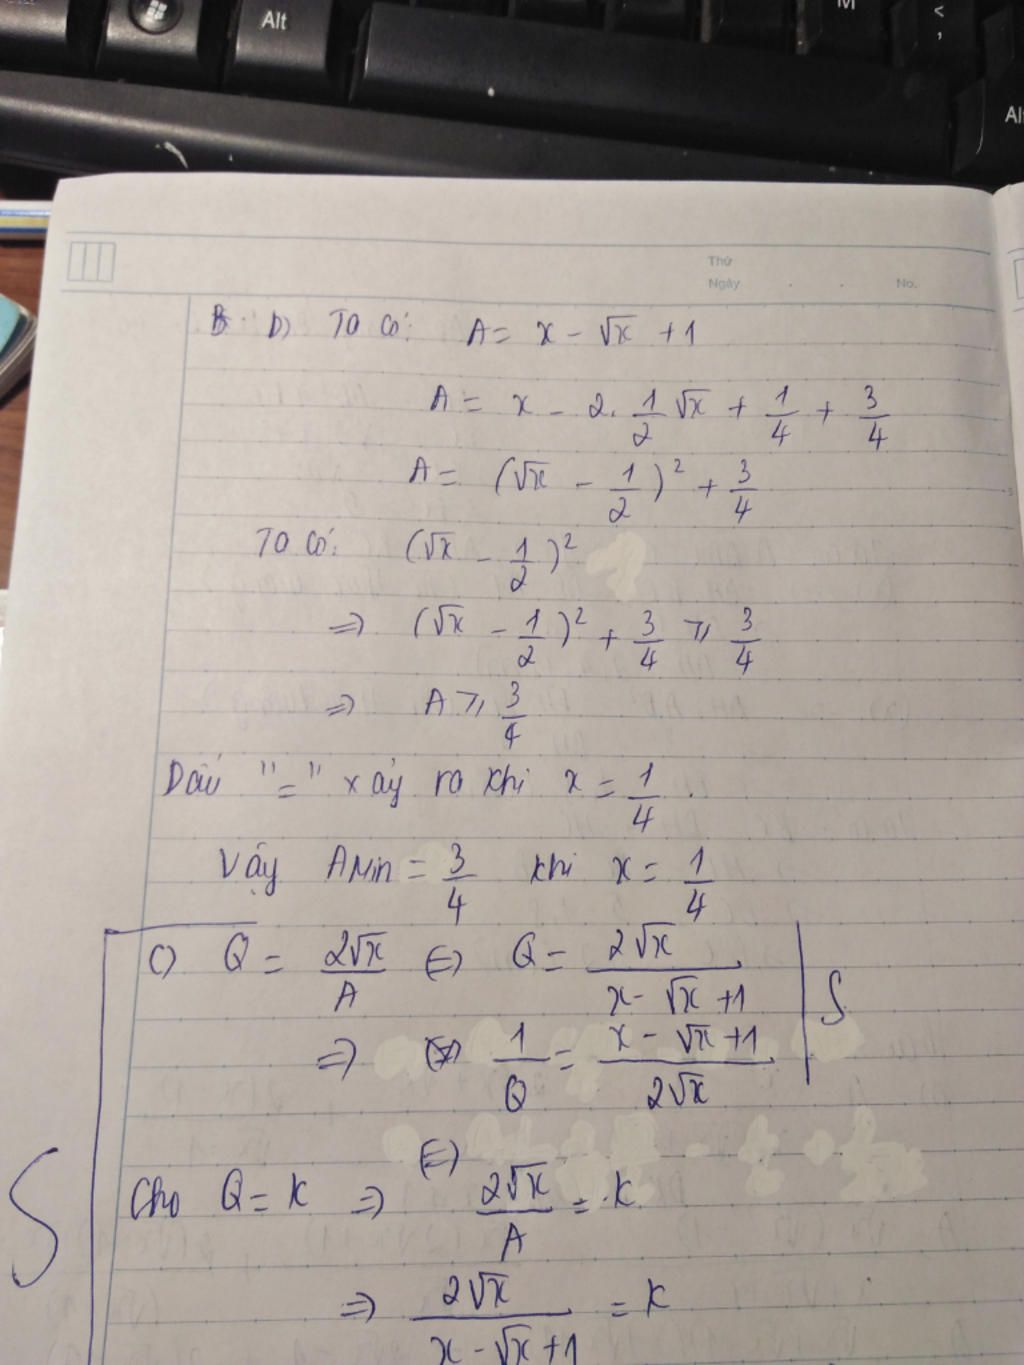 Alt
M
<
,
Alt
Thứ
Ngày . . No.
B. b) Ta có: A = x - √x + 1
A = x - 2. 1/2 √x + 1/4 + 3/4
A = (√x - 1/2)² + 3/4
Ta có: (√x - 1/2)²
=> (√x - 1/2)² + 3/4 ≥ 3/4
=> A ≥ 3/4
Dấu "=" xảy ra khi x = 1/4.
Vậy AMin = 3/4 khi x = 1/4
c) Q = 2√x/A (=) Q = 2√x/(x - √x + 1)
=> 1/Q = (x - √x + 1)/(2√x)
S
(=)
Cho Q = K => 2√x/A = K
=> 2√x/(x - √x + 1) = K
S